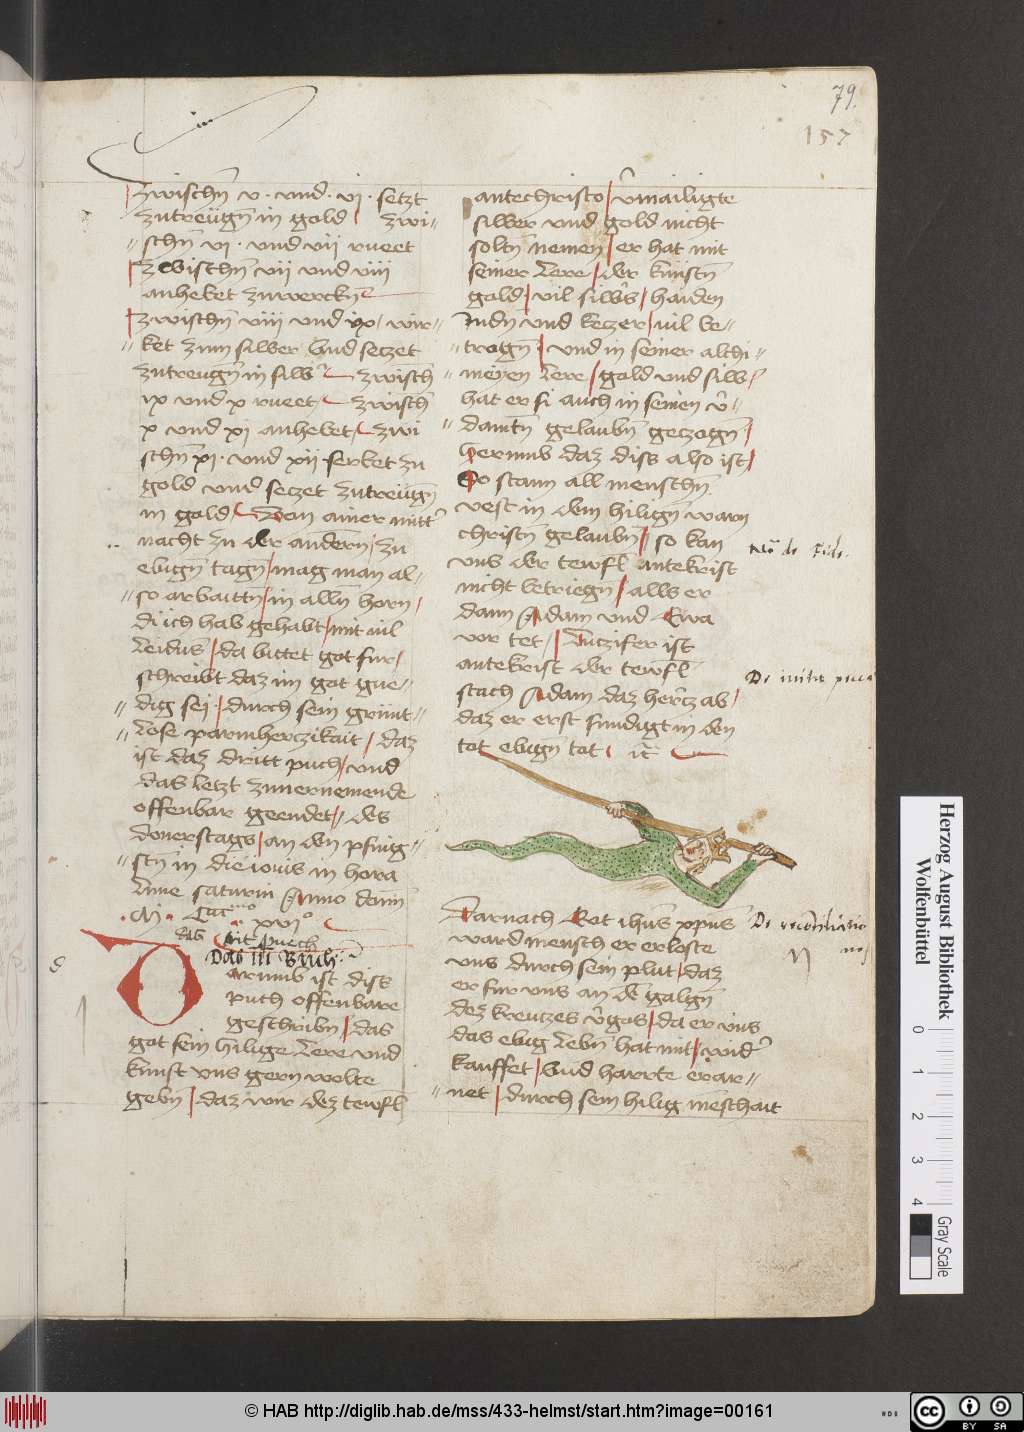 79.
157
zwischn̄ v · vnd · vi · setzt
zutreügn̄ in gold zwi-
schn̄ vi · vnd vii rueet
zwischn̄ vii vnd viii
anheket zuwerckn̄
zwischn̄ viii vnd ix / wür-
ket zum silber vnd seczet
zutreugn̄ in silb zwischn̄
ix vnd x rueet / zwischn̄
x vnd xi anhebet / zwi
schn̄ xi · vnd xii ferket zu
gold vnd seczet zutreügn̄
in gold / Von ainer mitt
nacht zu der andern / zu
ebign̄ tagn̄ / mag man al-
so arbaittn̄ / in alln̄ horn /
di ich hab gehabt / mit vil
leidns / da bittet got fur /
schreibt daz im got gne-
dig sei / durch sein grünt-
lose parmherczikait / daz
ist daz dritt puch / vnd
das letzt zuuernemende
offenbar geendet / des
donerstags / an den pfing-
stn̄ in die iouis in hora
lune saturni Anno domi
xvi
das
iit puech
Das iii Buch
Darumb ist diss
puch offenbare
geschribn̄ / das
got sein hilige lere vnd
kunst vns gern wolte
gebn̄ / daz wir dez tewfl
antechristo / v̄mailigte
silber vnd gold nicht
soltn̄ nemen / er hat mit
seiner lere / der künstn̄
gold / vil silb̄s / haiden
Judn̄ vnd keczer / vil be-
trogn̄ / vnd in seiner alchi-
meyen lere / gold vnd silb /
hat er si auch in seinen v̄-
damtn̄ gelaubn̄ geczogn̄ /
herumb daz diss also ist /
So stann all menschn̄
vest in dem hilign̄ warn
christn̄ gelaubn̄ / so kan
vns der tewfl antekrist
nicht betriegn̄ / alls er
dann Adam vnd Ewa
vor tet / Luczifer ist
antekrist der tewfl
stach Adam daz hercz ab /
daz er erst sundigt in den
tot ebign̄ tot / it
Darnach Got ihus xpus
ward mensch er erloste
vns durch sein plut / daz
er fur vns an dē galgn̄
dez kreuczes v̄gos / da er vns
das ebig lebn̄ hat mit / wid
kauffet / vnd harrte erar-
net / durch sein hilig mēschait
No de fide.
De
De
Herzog August Bibliothek
Wolfenbüttel
0 1 2 3 4
Gray Scale
© HAB http://diglib.hab.de/mss/433-helmst/start.htm?image=00161
HAB
cc
BY SA